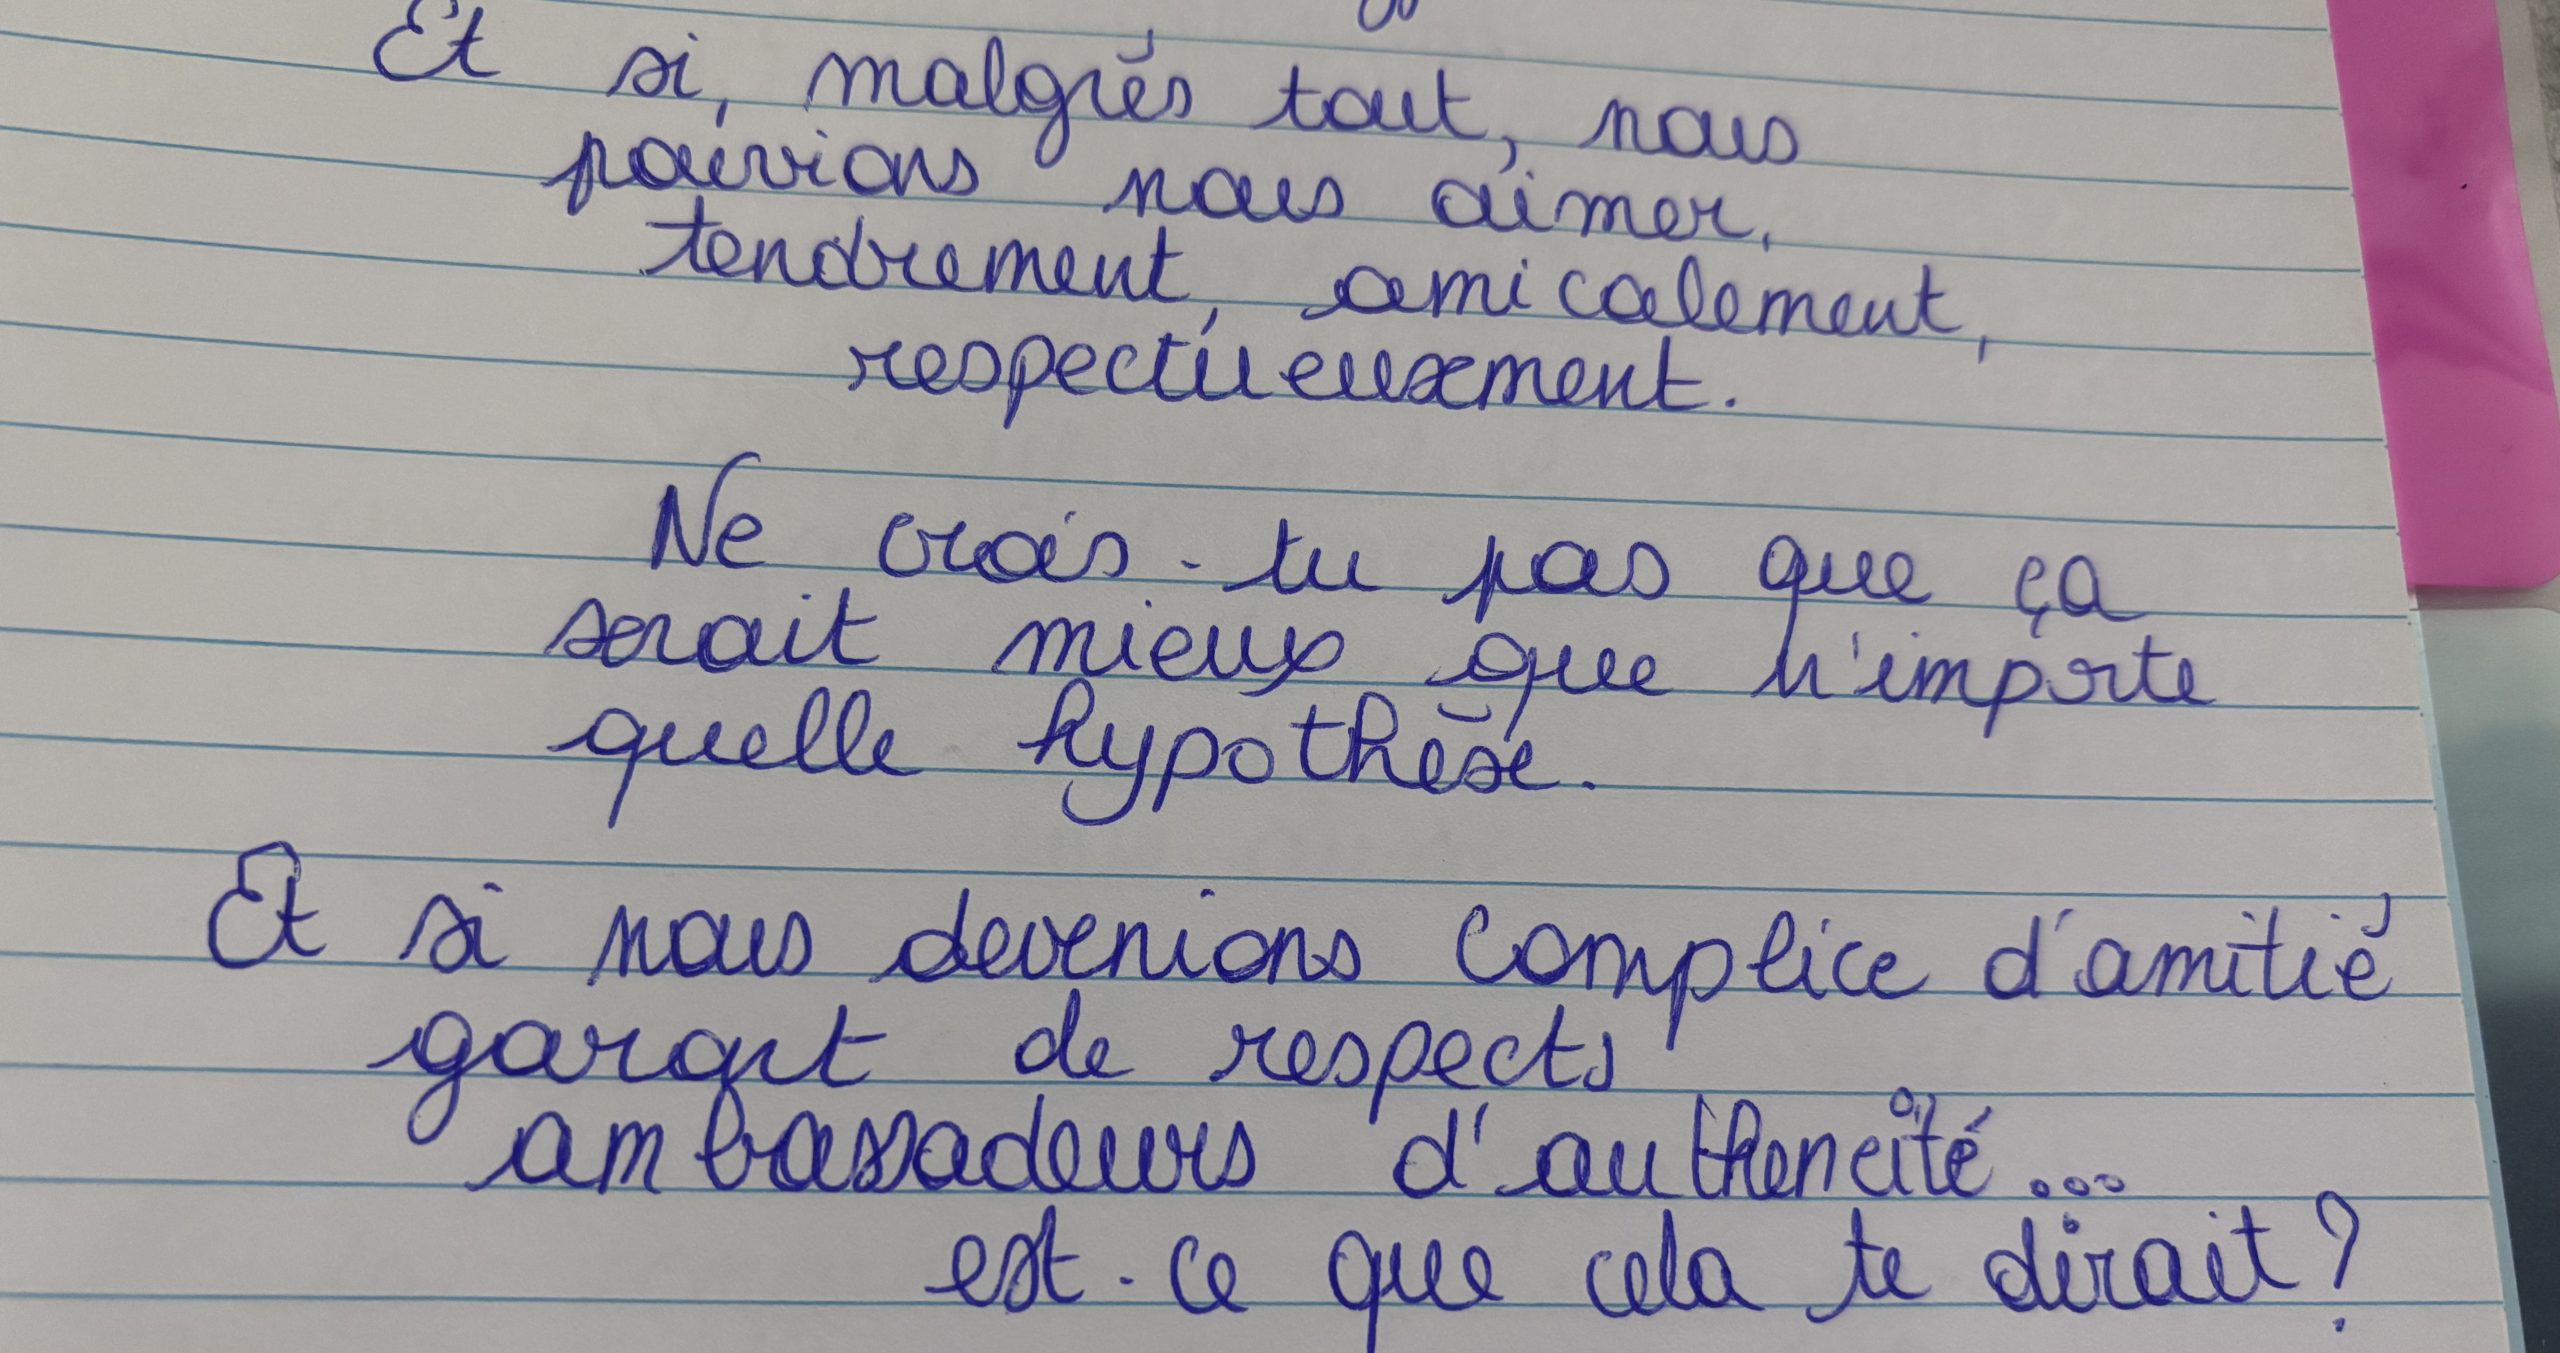 Et si, malgrés tout, nous
pouvions nous aimer,
tendrement, amicalement,
respectueuxment.
Ne crois-tu pas que ça
serait mieux que n'importe
quelle hypothèse.
Et si nous devenions complice d'amitié
garant de respects
ambassadeurs d'autheneité...
est-ce que cela te dirait?